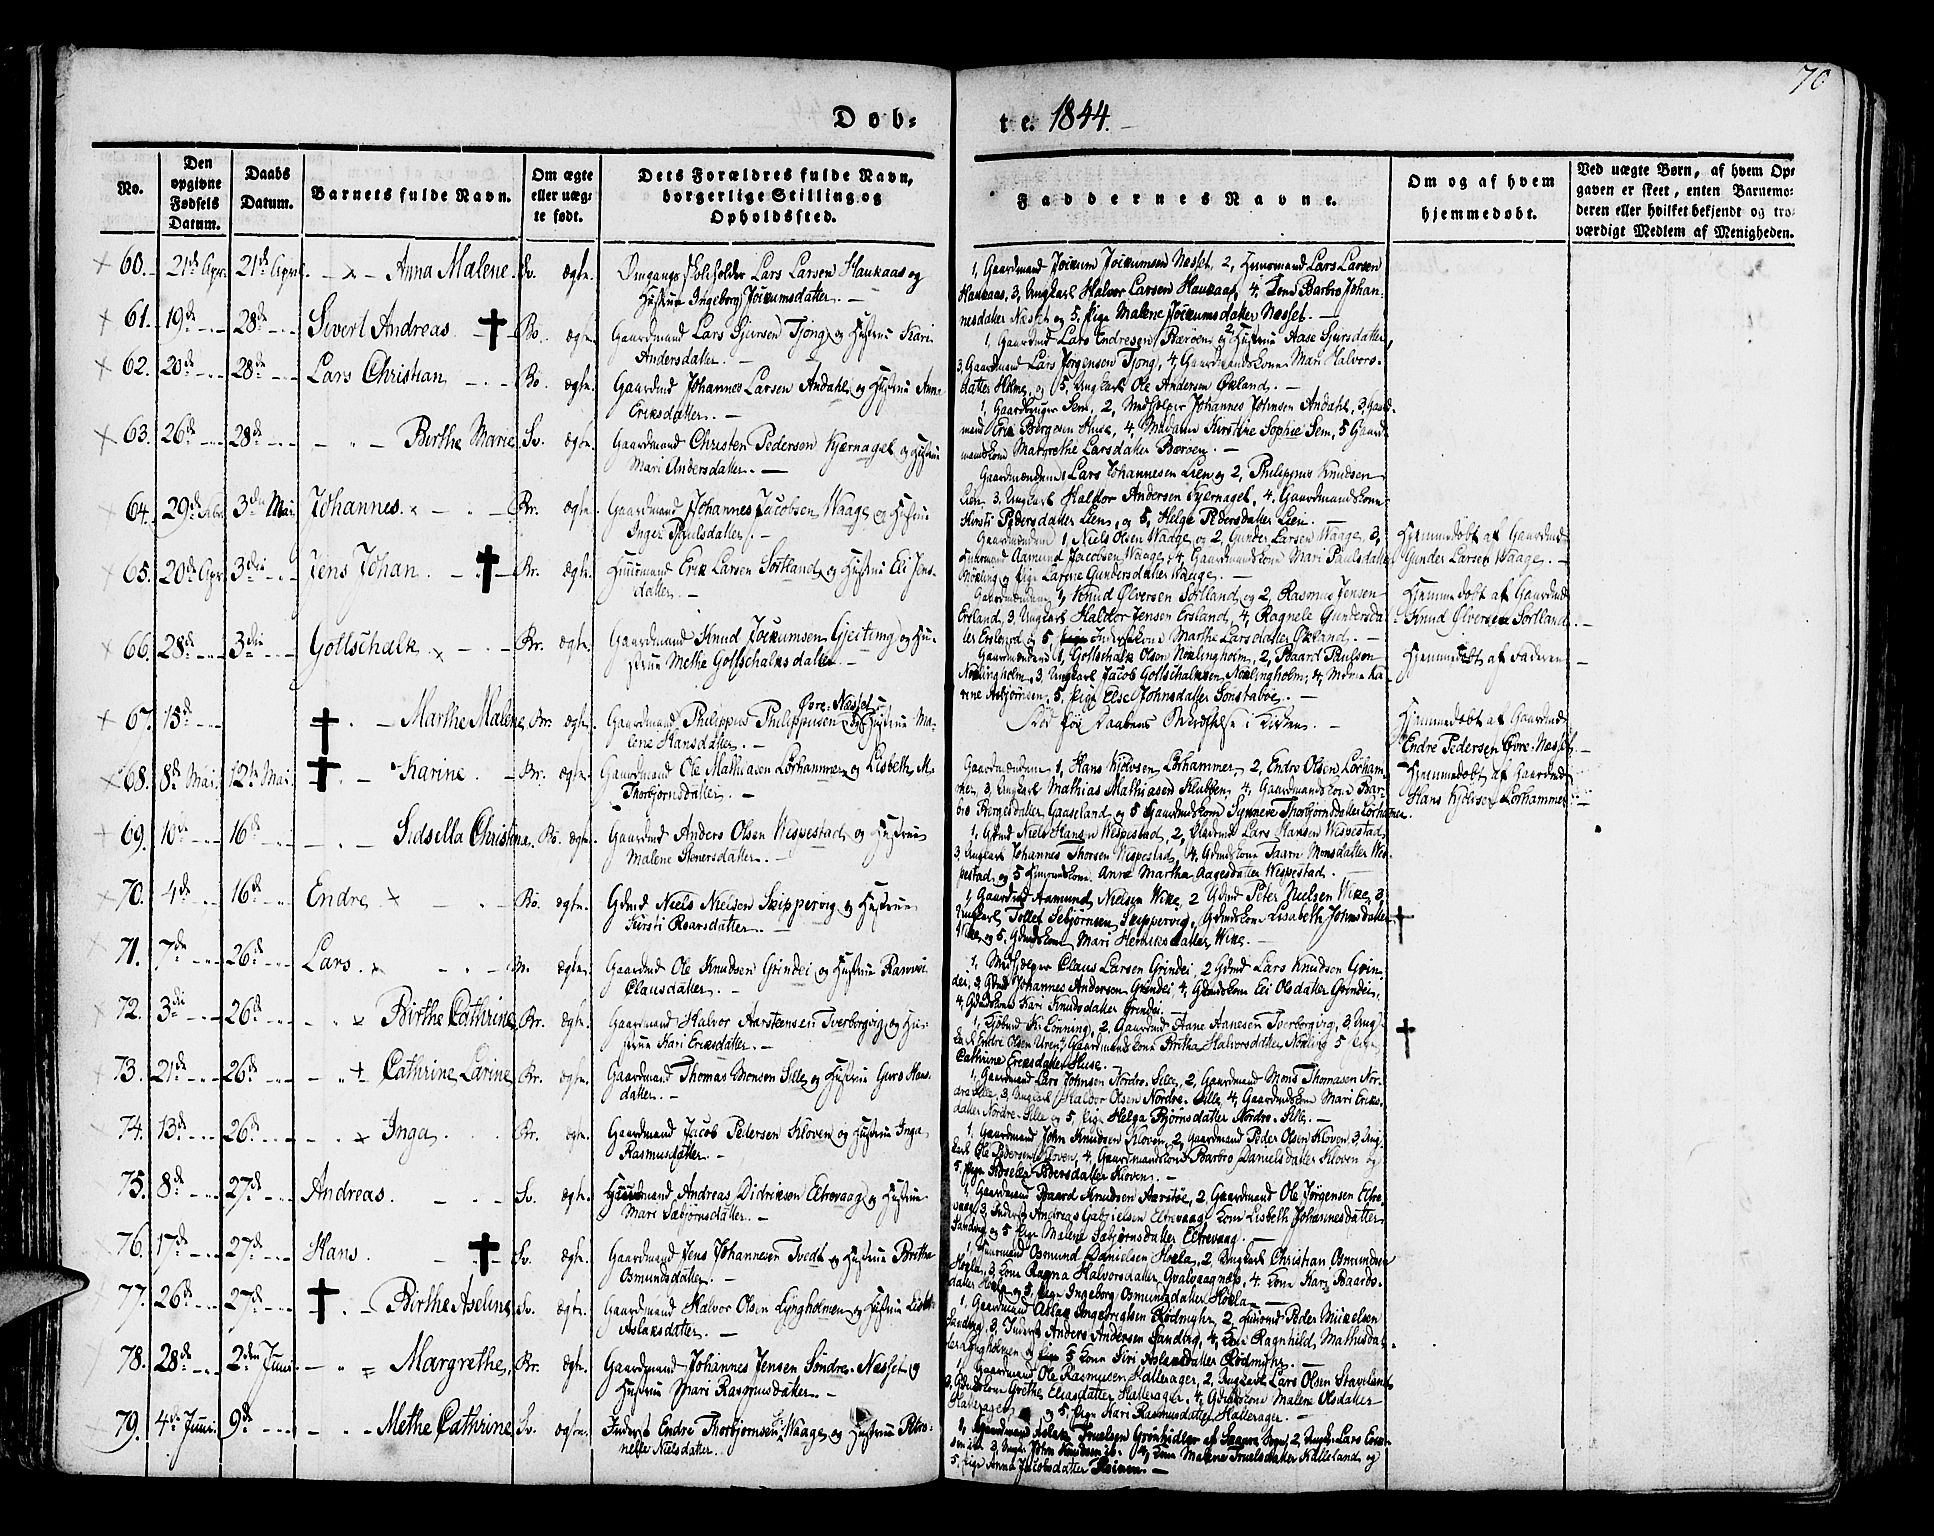 70
Døb-
te. 1844.
No.
Den opgivne Fødsels Datum.
Daabs Datum.
Barnets fulde Navn.
Om ægte eller uæg-te født.
Dets Forældres fulde Navn, borgerlige Stilling og Opholdssted.
Faddernes Navne.
Om og af hvem hjemmedøbt.
Ved uægte Børn, af hvem Op-
gaven er skeet, enten Barnemo-
deren eller hvilket bekjendt og tro-
værdigt Medlem af Menigheden.
60. 21de Apr. 21de April Anna Malene Sv. ægte. Lars Larsen Haukaas og
Hustrue Ingeborg Joikumsdatter.
1, Gaardmand Joikum Joikumsen Nesset, 2, Huusmand Lars Larsen
Haukaas, 3, Ungkarl Halvor Larsen Haukaas, 4, Kone Barbro Johan-
nesdatter Nesset og 5, Pige Malene Joikumsdatter Nesset.
61. 19de 28de Sivert Andreas Bo. ægte. Gaardmand Lars Sjursen Tjong og Hustrue Kari
Andersdatter.
1, Gaardmd Lars Endresen Børøen, 2 Hustrue Aase Sjursdatter,
3, Gaardmand Lars Jørgensen Tjong, 4, Gaardmandskone Mari Halvors-
datter Holme og 5, Ungkarl Ole Andersen Økland.
62. 20de 28de Lars Christian Bo. ægte. Gaardmd Johannes Larsen Andahl og Hustrue Anna
Eriksdatter.
1, Gaardbruger Sem, 2, Medhjelper Johannes Johnsen Andahl, 3, Gaard-
mand Erik Bergesen Huse, 4, Madame Kirstine Sophie Sem, 5 Gaard-
mandskone Margrethe Larsdatter Børøen.
63. 26de 28de Birthe Marie Sv. ægte. Gaardmand Christen Pedersen Kjernagel og Hustrue
Mari Andersdatter.
Gaardmændene 1, Lars Johannesen Lien og 2, Philippus Knudsen
Lien, 3, Ungkarl Haldor Andersen Kjernagel, 4, Gaardmandskone
Kirsti Pedersdatter Lien, og 5, Helge Pedersdatter Lien.
64. 29de Febr. 3die Mai Johannes Br. ægte. Gaardmand Johannes Jacobsen Waage og Hustrue
Inger Paulsdatter.
Gaardmændene 1, Niels Olsen Waage og 2, Gunder Larsen Waage, 3,
Huusmand Aamund Jacobsen Waage, 4, Gaardmandskone Mari Paulsdatter
Nøkling og Pige Larine Gundersdatter Waage.
Hjemmedøbt af Gaardmd
Gunder Larsen Waage.
65. 20de Apr. 3die Jens Johan Br. ægte. Huusmand Erik Larsen Sortland og Hustrue Eli Jens-
datter.
Gaardmændene 1, Knud Ølversen Sortland og 2, Rasmus Jensen
Ersland, 3, Ungkarl Haldor Jensen Ersland, 4, Ragnele Gundersda-
ter Ersland og 5, Marthe Larsdatter Økland.
Hjemmedøbt af Gaardmd
Knud Ølversen Sortland.
66. 28de 3die Gottschalk Br. ægte. Gaardmand Knud Joikumsen Gjesting og Hu-
strue Methe Gottschalksdatter.
Gaardmændene 1, Gottschalk Olsen Nøklingholm, 2, Baard Paulsen
Nøklingholm, 3, Ungkarl Jacob Gottschalksen Nøklingholm, 4, Ka-
rine Asbjørnsen, 5, Pige Else Johnsdatter Sonstabøe.
Hjemmedøbt af Faderen
67. 15de Marthe Malene Br. ægte. Gaardmand Philippus Philippusen Øvre-Nesset og Hustrue Ma-
lene Hansdatter.
Død før Daabens Bekræftelse i Kirken.
Hjemmedøbt af Gaardmd
Endre Pedersen Øvre-Nesset
68. 8de Mai 12te Mai Karine Br. ægte. Gaardmand Ole Mathiasen Lørhammer og Lisbeth M.
Thorbjørnsdatter.
Gaardmændene 1, Hans Kjølvsen Lørhammer, 2, Endre Olsen Lørham-
mer, 3, Ungkarl Mathias Mathiasen Klubben, 4, Gaardmandskone Bar-
bro Bergesdatter Gaaseland og 5 Gaardmdskone Synneve Thorbjørnsdatter Lørhamer.
Hjemmedøbt af Gaardmd
Hans Kjølvsen Lørhammer
69. 10de 16de Sidsella Christina Bo. ægte. Gaardmd Anders Olsen Wespestad og Hustrue
Malene Stenersdatter.
1, Gdmd Niels Hansen Wespestad, 2, Gaardmd Lars Hansen Wespestad,
3, Ungkarl Johannes Thorsen Wespestad, 4, Gdmdskone Taarn Monsdatter Wes-
pestad og 5 Anna Martha Aagesdatter Wespestad.
70. 4de 16de Endre Bo. ægte. Gdmd Niels Nielsen Skippervig og Hustrue
Kirsti Roarsdatter.
1, Gaardmd Aamund Nielsen Wike, 2 Gdmd Peter Nielsen Wike, 3,
Ungkarl Tollef Sebjørnsen Skippervig, Gdmdskone Lisabeth Johnsdatter
Wike og 5, Gdmdskone Mari Henriksdatter Wike.
71. 7de 26de Lars M. ægte. Gaardmd Ole Knudsen Grindei og Hustrue Rannvei
Clausdatter.
1, Medhjelper Claus Larsen Grindei, 2 Gdmd Lars Knudsen Grin-
dei, 3, Gdmd Johannes Andersen Grindei, 4, Gdmdskone Eli Olsdatter Grindei,
4, Gdmdskone Kari Knudsdatter Grindei.
72. 3die 26de Birthe Cathrine Br. ægte. Gaardmand Halvor Aarstensen Tverborgvig og Hu-
strue Kari Eriksdatter.
Kjøbmd K. Lønning, 2, Gaardmd Aane Aanesen Tverborgvig, 3, Ung-
karl Endre Olsen Uren, Gaardmandskone Britha Halvorsdatter Nøkling 5 Pige
Cathrine Eriksdatter Huse.
73. 21de 26de Cathrine Larine Br. ægte. Gaardmand Thomas Monsen Sille og Hustrue Guro Hans-
datter.
1, Gaardmand Lars Johnsen Nordre-Sille, 2, Gaardmand Mons Thomasen Nor-
dre-Sille, 3, Ungkarl Halvor Olsen Nordre-Sille, 4, Gaardmdskone Mari Eriks-
datter Nordre-Sille og 5, Pige Helga Bjørnsdatter Nordre-Sille.
74. 13de 26de Inga Br. ægte. Gaardmand Jacob Pedersen Kloven og Hustrue Inga
Rasmusdatter.
1, Gaardmand John Knudsen Kloven, 2, Gaardmand Peder Olsen Kloven, 3, Ung-
karl Ole Pedersen Kloven, 4, Gaardmandskone Barbro Danielsdatter Kloven og
5, Pige Sidsele Pedersdatter Kloven.
75. 8de 27de Andreas Sv. ægte. Huusmand Andreas Didriksen Eltrevaag og Hustrue
Mari Sebjørnsdatter.
1, Gaardmand Baard Knudsen Aarstøe, 2, Gaardmand Ole Jørgensen Eltre-
vaag, 3, Inderst Andreas Gabrielsen Eltrevaag Kone Lisbeth Johannesdatter
Sandvig og 5 Pige Malene Sebjørnsdatter Eltrevaag.
76. 17de 27de Hans Sv. ægte. Gaardmand Jens Johannesen Tvedt og Hustrue Britha
Osmundsdatter.
1, Huusmand Osmund Danielsen Høkla, 2, Ungkarl Christian Osmundsen
Høkla, 3, Kone Ragna Halvorsdatter Qvalvaagnæs, 4. Kone Kari Baards-
datter Høkla og 5, Pige Ingeborg Osmundsdatter Høkla.
77. 26de 27de Birthe Aselene Sv. ægte. Gaardmand Halvor Olsen Lyngholmen og Hustrue
Aslaksdatter.
1, Gaardmand Aslak Ingebrigtsen Rødmyhr, 2, Huusmd Peder Mikkelsen
Sandvig, 3, Inderst Anders Andersen Sandvig, 4, Kone Ragnhild Mathisdat-
ter Lyngholmen og 5 Kone Siri Aslaksdatter Rødmyhr.
78. 28de 2den Juni Margrethe Br. ægte. Gaardmand Johannes Jensen Søndre-Nesset og
Hustrue Mari Rasmusdatter.
1, Gaardmand Ole Rasmusen Hallerager, 2, Ungkarl Lars Olsen Staveland,
3, Gdmdskone Grethe Eliasdatter Hallerager, 4, Gdmdskone Malene Olsdatter
Hallerager og 5, Pige Kari Rasmusdatter Hallerager.
79. 4de Juni 9de Methe Cathrine Sv. ægte. Inderst Endre Thorbjørnsen Waage og Hustrue Petro-
nelle Nielsdatter.
1, Gaardmand Aslak Truelsen Grønhidler af Skaare Sogn, 2, Ungk. Lars
3, Ungk. John Knudsen ib. 4, Kone Malene Truelsdatter Kalleland og
5, Pige Anna Jacobsdatter